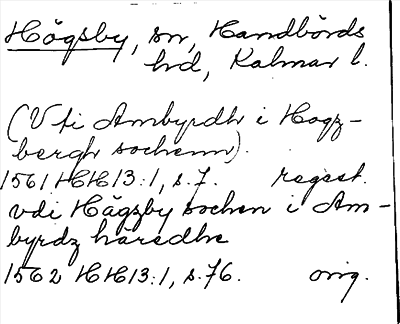 Högsby, sn, Handbörds
hd, Kalmar l.
(Vti Ambyrdh i Hogz-
bergh sochenn).
1561 HH 13:1, s. 7. regest.
vdi Hägzby sochen i Am-
byrdz häredhe
1562 HH 13:1, s. 76. orig.